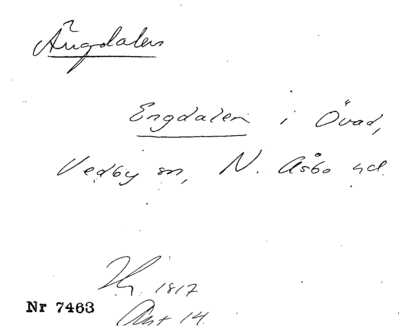 Ängdalen
Engdalen i Övad,
Vedby sn, N. Åsbo hd.
1817
Nr 7463
Akt 14.